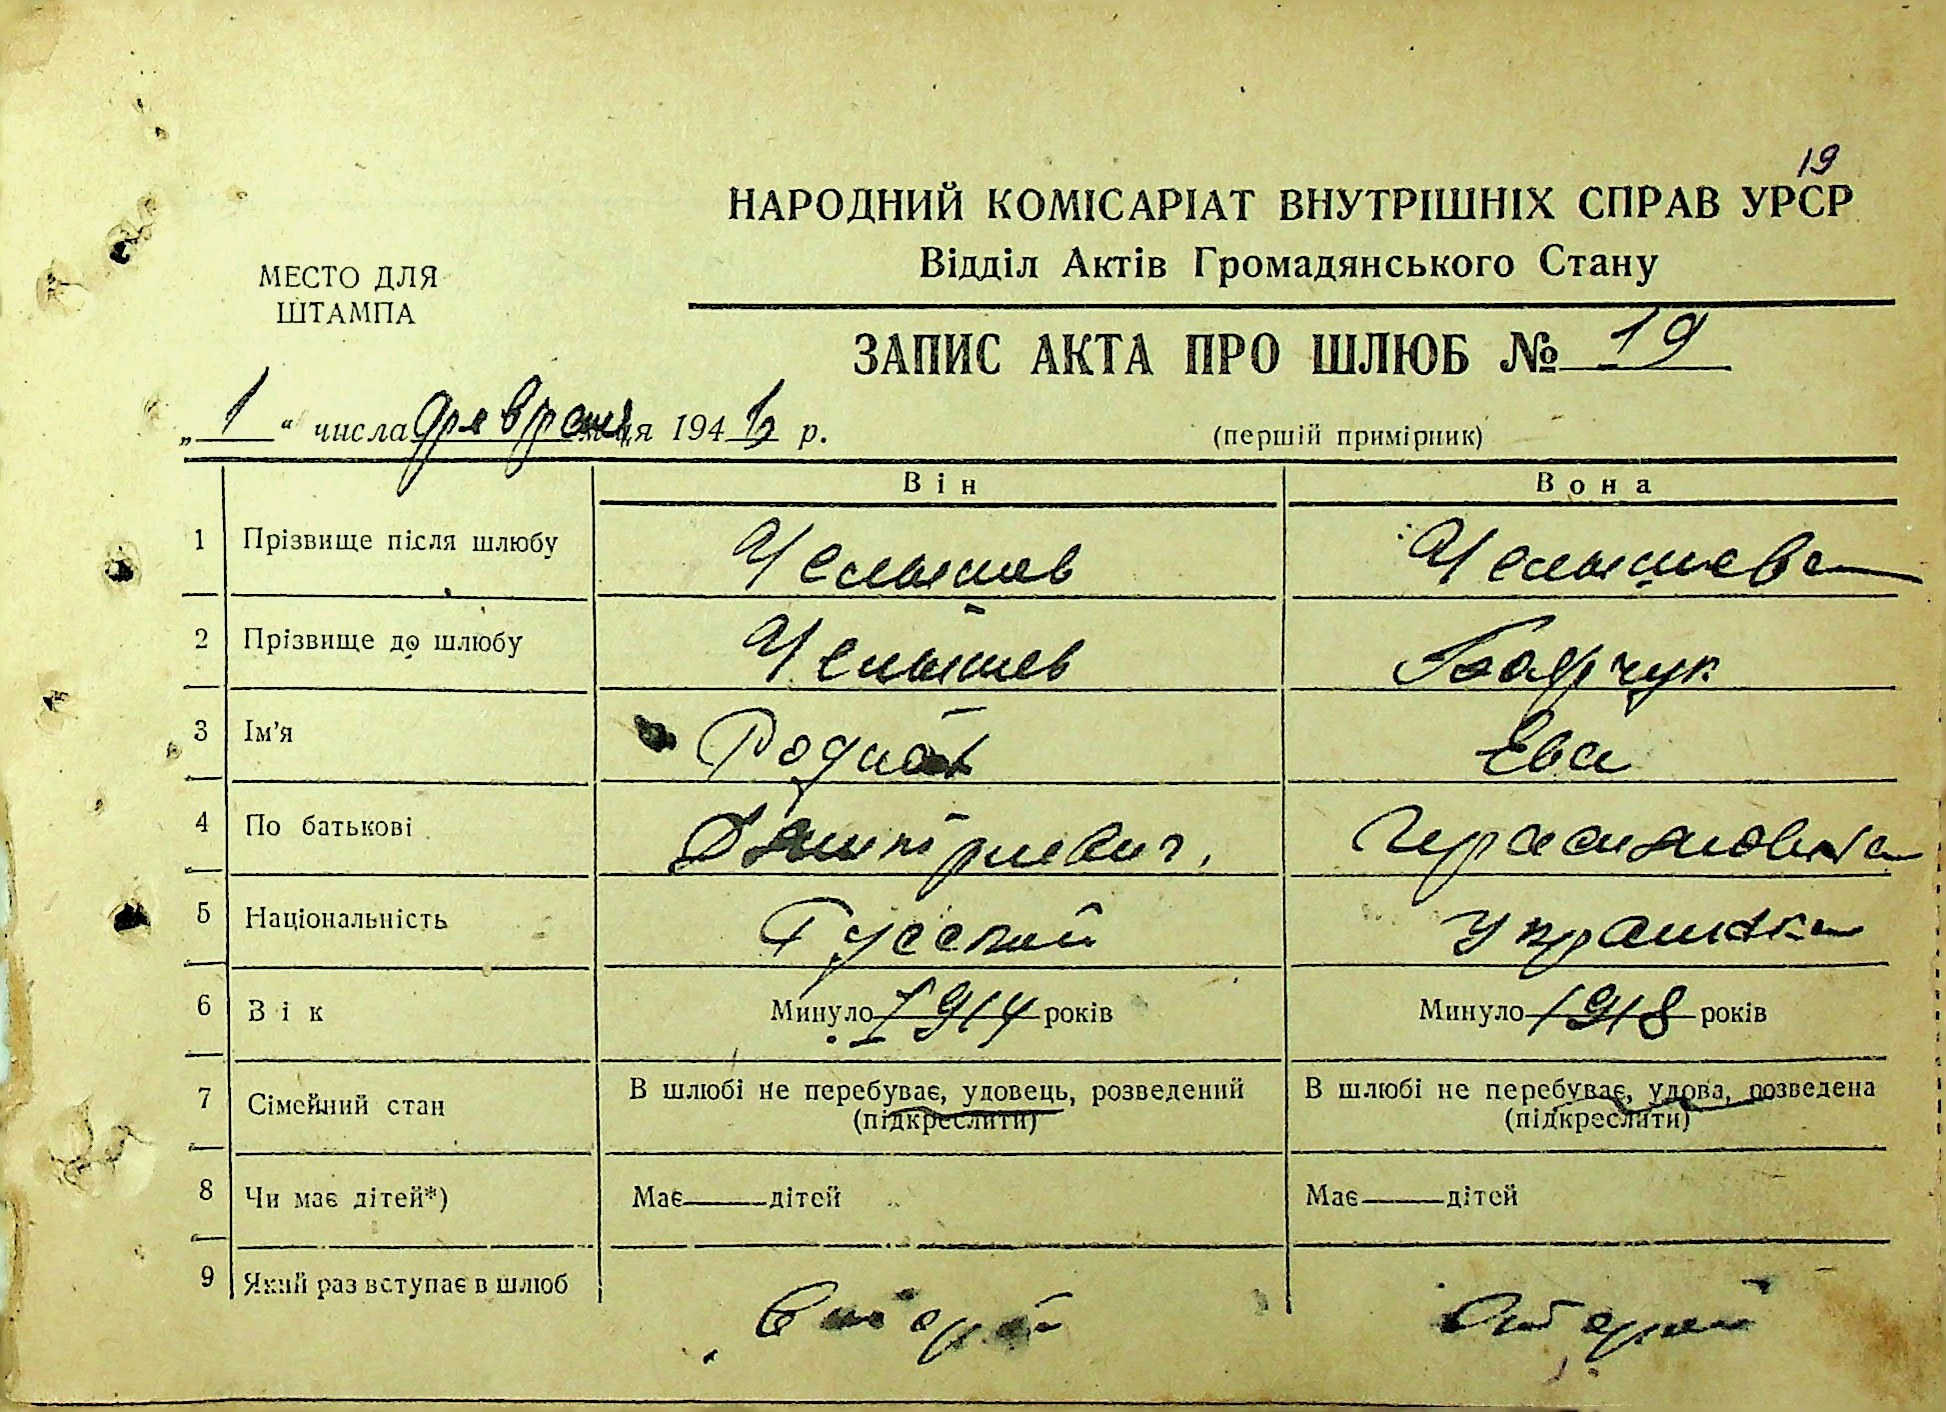 19
НАРОДНИЙ КОМІСАРІАТ ВНУТРІШНІХ СПРАВ УРСР
Відділ Актів Громадянського Стану
МЕСТО ДЛЯ
ШТАМПА
ЗАПИС АКТА ПРО ШЛЮБ № 19
„ 1 “ числа февраля 194 р.
(перший примірник)
Він Вона
1 Прізвище після шлюбу Челышев Челышева
2 Прізвище до шлюбу Челышев
3 Ім'я Родион Ева
4 По батькові Дмитриевич. Герасимовна
5 Національність Русский Украинка
6 Вік Минуло 1914 років Минуло 1918 років
7 Сімейний стан В шлюбі не перебуває, удовець, розведений В шлюбі не перебуває, удова, розведена
(підкреслити) (підкреслити)
8 Чи має дітей*) Має — дітей Має — дітей
9 Який раз вступає в шлюб второй второй